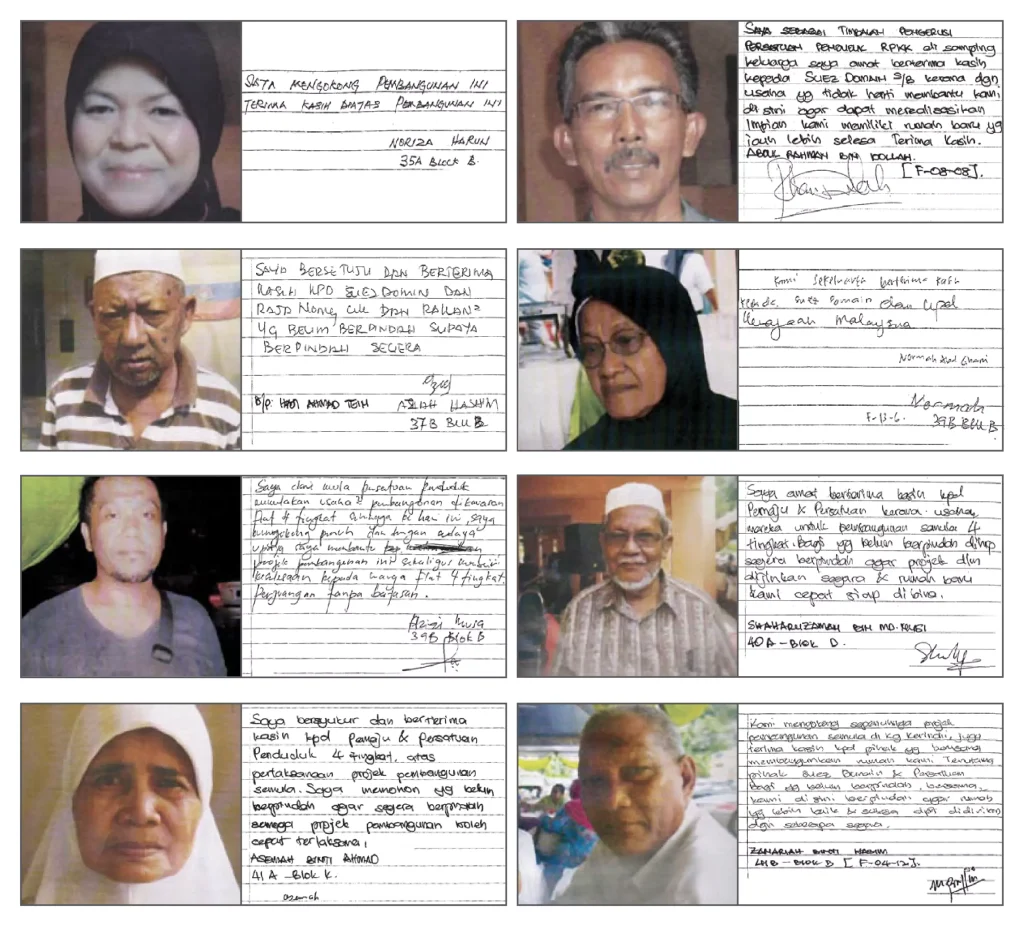 SAYA MENGOKONG PEMBANGUNAN INI
TERIMA KASIH DIATAS PEMBANGUNAN INI
NORIZA HARUN
35A BLOCK B.
SAYA SEBAGAI TIMBALAN PENGERUSI
PERSATUAN PENDUDUK RPKK di samping
keluarga saya amat berterima kasih
kepada SUEZ DOMAIN S/B kerana dgn
usaha yg tidak henti membantu kami
di sini agar dapat merealisasikan
Impian kami memiliki rumah baru yg
jauh lebih selesa Terima Kasih.
ABDUL RAHMAN BIN DOLLAH.
[F-08-08].
SAYA BERSETUJU DAN BERTERIMA
KASIH KPD SUEZ DOMIN DAN
RAJA NONG CIK DAN RAKAN²
yg BELUM BERPINDAH SUPAYA
BERPINDAH SEGERA
B/P: HAJI AHMAD TEIH AZIAH HASHIM
37B BLK B
Kami sekeluarga berterima kasih
Kepada Suez Domain dan
Kerajaan Malaysia
Normah Abd Ghani
Normah
F-13-6. 39B BLK B
Saya dari mula persatuan penduduk
mulakan usaha² pembangunan dikawasan
flat 4 tingkat sehingga ke hari ini, saya
menyokong penuh dan dengan adanya
saya membantu
projek pembangunan ini sekaligus
kepada warga flat 4 tingkat
Perjuangan tanpa batasan.
Azizi Musa
39B Blok B
Saya amat berterima kasih kpd
Pemaju & Persatuan kerana usaha
mereka untuk pembangunan semula 4
tingkat. Bagi yg belum berpindah diharap
segera berpindah agar projek dlm
dijalankan segera & rumah baru
kami cepat siap dibina.
SHAHARUZAMAN BIN MD. RUSI
40A - BLOK D.
Saya bersyukur dan berterima
kasih kpd Pemaju & Persatuan
Penduduk 4 tingkat, atas
perlaksanaan projek pembangunan
semula. Saya memohon yg belum
berpindah agar segera berpindah
semoga projek pembangunan boleh
cepat terlaksana,
ASEMAH BINTI AHMAD
41A - BLOK K.
asemah
Kami menyokong sepenuhnya projek
pembangunan semula di Kg Kerinchi, juga
terima kasih kpd pihak yg bersama
rumah kami. Terutama
pihak Suez Domain & Persatuan
Bagi yg belum berpindah, bersama
kami di sini berpindah agar rumah
yg lebih baik & selesa dpt didirikan
dgn seberapa segera.
ZAHARIAH BINTI HASHIM
41B - BLOK B [F-04-12].